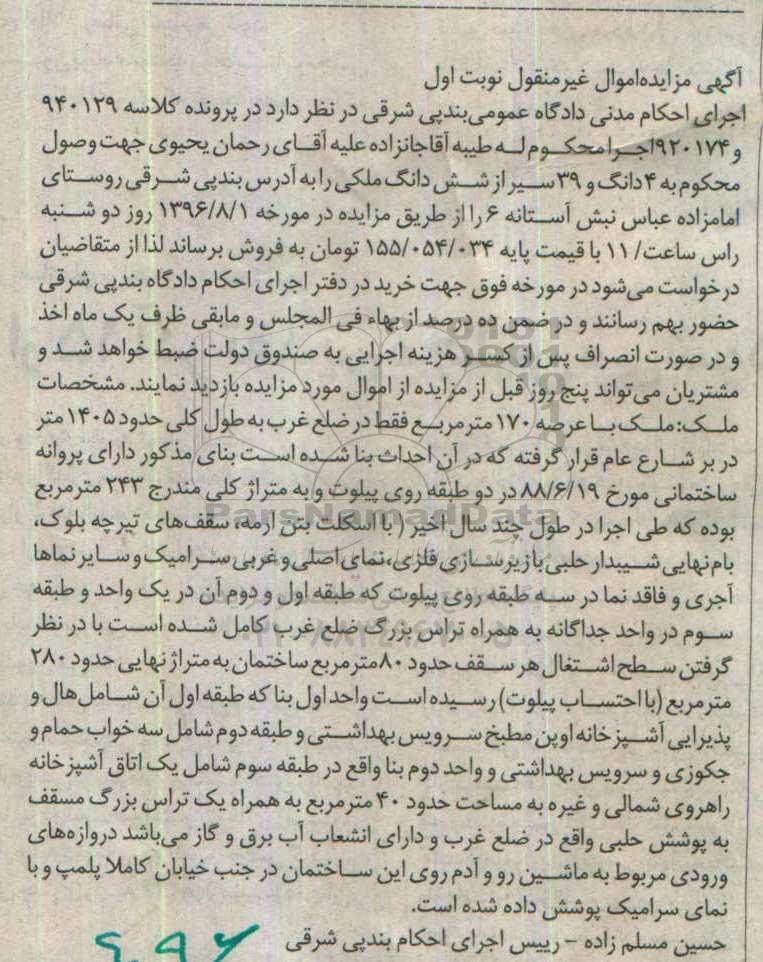 آگهی مزایده‌اموال غیرمنقول نوبت اول
اجرای احکام مدنی دادگاه عمومی‌بندپی شرقی در نظر دارد در پرونده کلاسه ۹۴۰۱۲۹
و ۹۲۰۱۷۴اجرا محکوم له طیبه آقاجانزاده علیه آقای رحمان یحیوی جهت وصول
محکوم به ۴ دانگ و ۳۹ سیر از شش دانگ ملکی را به آدرس بندپی شرقی روستای
امامزاده عباس نبش آستانه ۶ را از طریق مزایده در مورخه ۱۳۹۶/۸/۱ روز دو شنبه
راس ساعت/ ۱۱ با قیمت پایه ۱۵۵/۰۵۴/۰۳۴ تومان به فروش برساند لذا از متقاضیان
درخواست می‌شود در مورخه فوق جهت خرید در دفتر اجرای احکام دادگاه بندپی شرقی
حضور بهم رسانند و در ضمن ده درصد از بهاء فی المجلس و مابقی ظرف یک ماه اخذ
و در صورت انصراف پس از کسر هزینه اجرایی به صندوق دولت ضبط خواهد شد و
مشتریان می‌تواند پنج روز قبل از مزایده از اموال مورد مزایده بازدید نمایند. مشخصات
ملک: ملک با عرصه ۱۷۰ مترمربع فقط در ضلع غرب به طول کلی حدود ۱۴۰۵ متر
در بر شارع عام قرار گرفته که در آن احداث بنا شده است بنای مذکور دارای پروانه
ساختمانی مورخ ۸۸/۶/۱۹ در دو طبقه روی پیلوت و به متراژ کلی مندرج ۲۴۳ مترمربع
بوده که طی اجرا در طول چند سال اخیر ( با اسکلت بتن ارمه، سقف‌های تیرچه بلوک،
بام نهایی شیبدار حلبی با زیرسازی فلزی، نمای اصلی و غربی سرامیک و سایر نماها
آجری و فاقد نما در سه طبقه روی پیلوت که طبقه اول و دوم آن در یک واحد و طبقه
سوم در واحد جداگانه به همراه تراس بزرگ ضلع غرب کامل شده است با در نظر
گرفتن سطح اشتغال هر سقف حدود ۸۰مترمربع ساختمان به متراژ نهایی حدود ۲۸۰
مترمربع (با احتساب پیلوت) رسیده است واحد اول بنا که طبقه اول آن شامل هال و
پذیرایی آشپزخانه اوپن مطبخ سرویس بهداشتی و طبقه دوم شامل سه خواب حمام و
جکوزی و سرویس بهداشتی و واحد دوم بنا واقع در طبقه سوم شامل یک اتاق آشپزخانه
راهروی شمالی و غیره به مساحت حدود ۴۰ مترمربع به همراه یک تراس بزرگ مسقف
به پوشش حلبی واقع در ضلع غرب و دارای انشعاب آب برق و گاز می‌باشد دروازه‌های
ورودی مربوط به ماشین رو و آدم روی این ساختمان در جنب خیابان کاملا پلمپ و با
نمای سرامیک پوشش داده شده است.
حسین مسلم زاده – رییس اجرای احکام بندپی شرقی
ParsNamadData